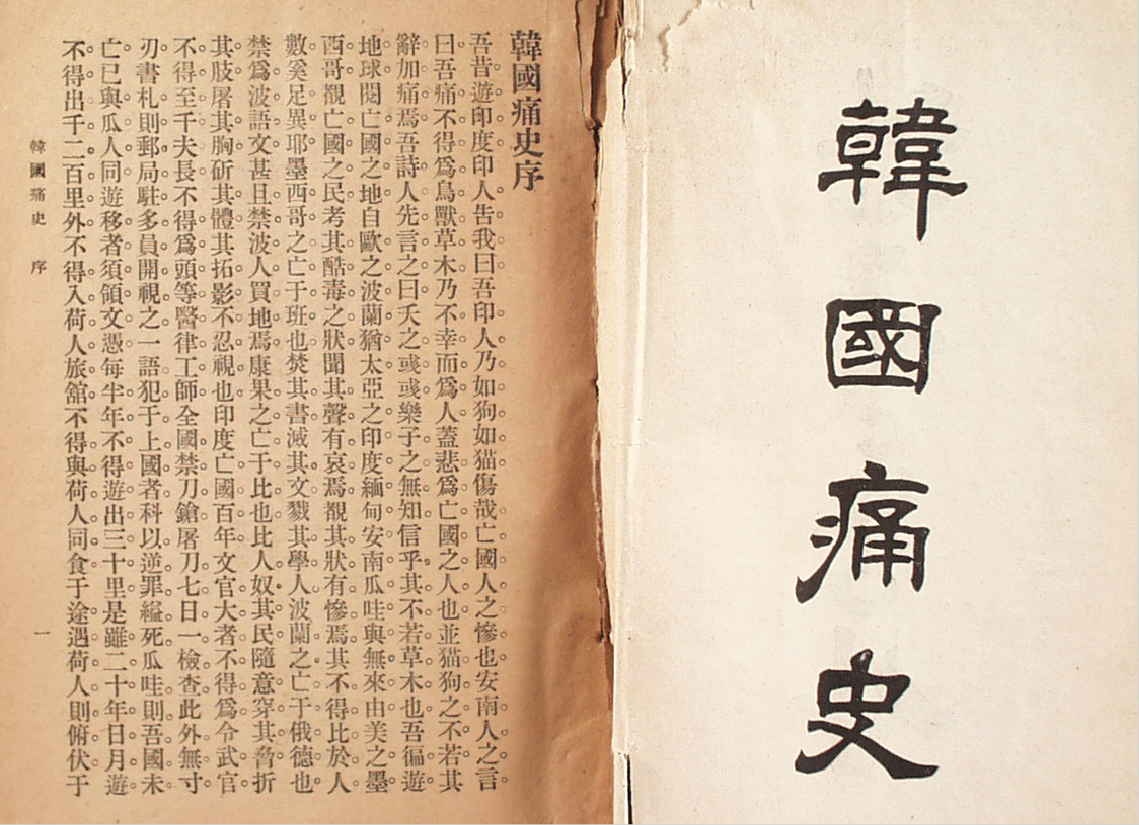 韓國痛史
韓國痛史序
吾昔遊印度印人告我曰吾印人乃如狗如猫傷哉亡國人之慘也安南人之言
曰吾痛不得爲鳥獸草木乃不幸而爲人蓋悲爲亡國之人也並猫狗之不若其
辭加痛焉吾詩人先言之曰夭之彧彧樂子之無知信乎其不若草木也吾徧遊
地球閱亡國之地自歐之波蘭猶太亞之印度緬甸安南瓜哇與無來由美之墨
西哥覩亡國之民考其酷毒之狀聞其聲有哀焉覩其狀有慘焉其不得比於人
數奚足異耶墨西哥之亡于班也焚其書滅其文戮其學人波蘭之亡于俄德也
禁爲波語文甚且禁波人買地焉康果之亡于比也比人奴其民隨意穿其脅折
其肢屠其胸斫其體其拓影不忍視也印度亡國百年文官大者不得爲令武官
不得至千夫長不得爲頭等醫律工師全國禁刀鎗屠刀七日一檢查此外無寸
刃書札則郵局駐多員開視之一語犯于上國者科以逆罪縊死瓜哇則吾國未
亡已與瓜人同遊移者須領文憑每半年不得遊出三十里是雖二十年日月遊
不得出千二百里外不得入荷人旅舘不得與荷人同食于途遇荷人則俯伏于
韓國痛史 序 一